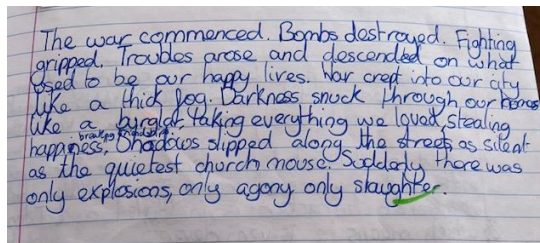 The war commenced. Bombs destroyed. Fighting
gripped. Troubles arose and descended on what
used to be our happy lives. War crept into our city
like a thick fog. Darkness snuck through our homes
like a burglar, taking everything we loved, stealing
breaking friendships
happiness, Shadows slipped along the streets as silent
as the quietest church mouse. Suddenly there was
only explosions, only agony only slaughter.